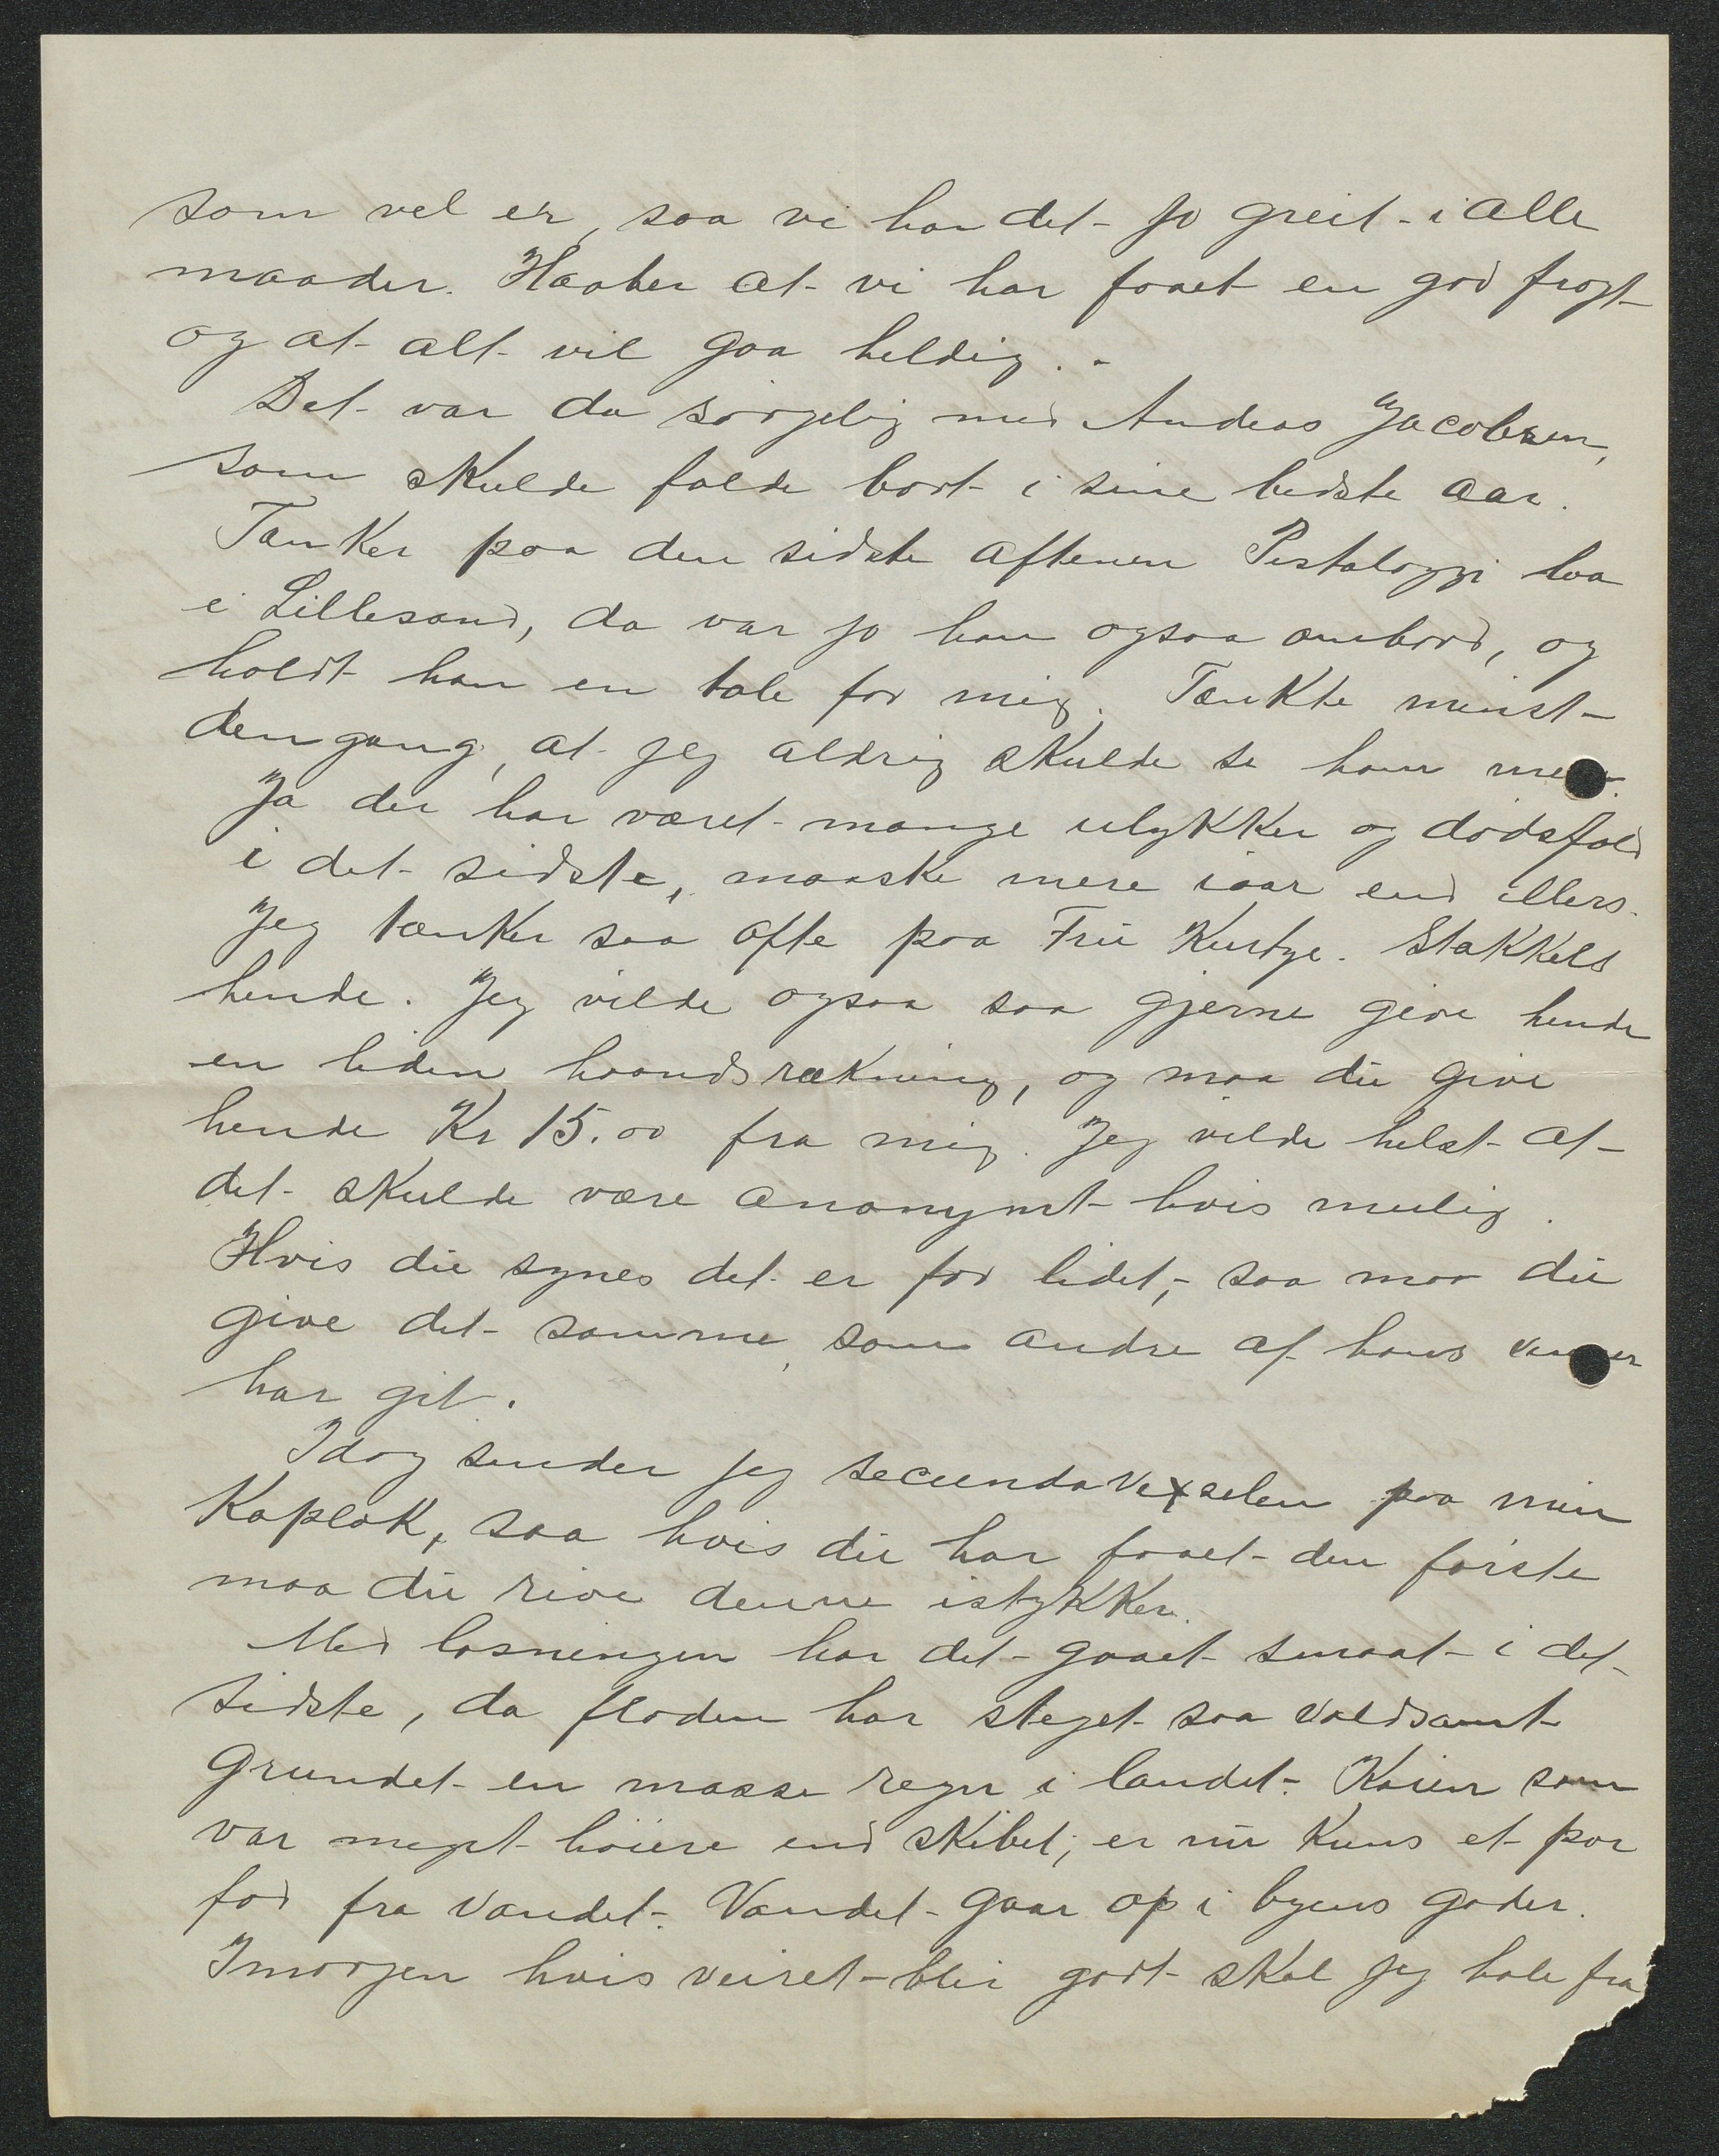 som vel er, saa vi har det jo greit i alle
maader. Haaber at vi har faaet en god fragt
og at alt vil gaa heldig. -
Det var da sörgelig med Andeas Jacobsen,
som skulde falde bort i sine bedste aar.
Tænker paa den sidste aftenen Pestalozzi laa
i Lillesand, da var jo han ogsaa ombord, og
holdt han en tale for mig. Tænkte minst
dengang, at jeg aldrig skulde se ham mer.
Ja der har været mange ulykker og dödsfald
i det sidste, maaske mere iaar end ellers.
Jeg tænker saa ofte paa Frü. Stakkels
hende. Jeg vilde ogsaa saa gjerne give hende
en liden haandsrækning, og maa dü give
hende Kr 15.00 fra mig. Jeg vilde helst at
det skulde være anonymt hvis mulig.
Hvis dü synes det er for lidet, saa maa dü
give det samme, som andre af hans venner
har git.
Idag sender jeg secundavexselen paa min
Kaplak, saa hvis dü har faaet den förste
maa dü rive denne istykker.
Med losningen har det gaaet smaat i det
sidste, da floden har steget saa voldsamt
grundet en masse regn i landet. Kaien som
var meget höiere end skibet, er nü kuns et par
fod fra vandet. Vandet gaar op i byens gader.
Imorgen hvis veiret blir godt skal jeg hale fra